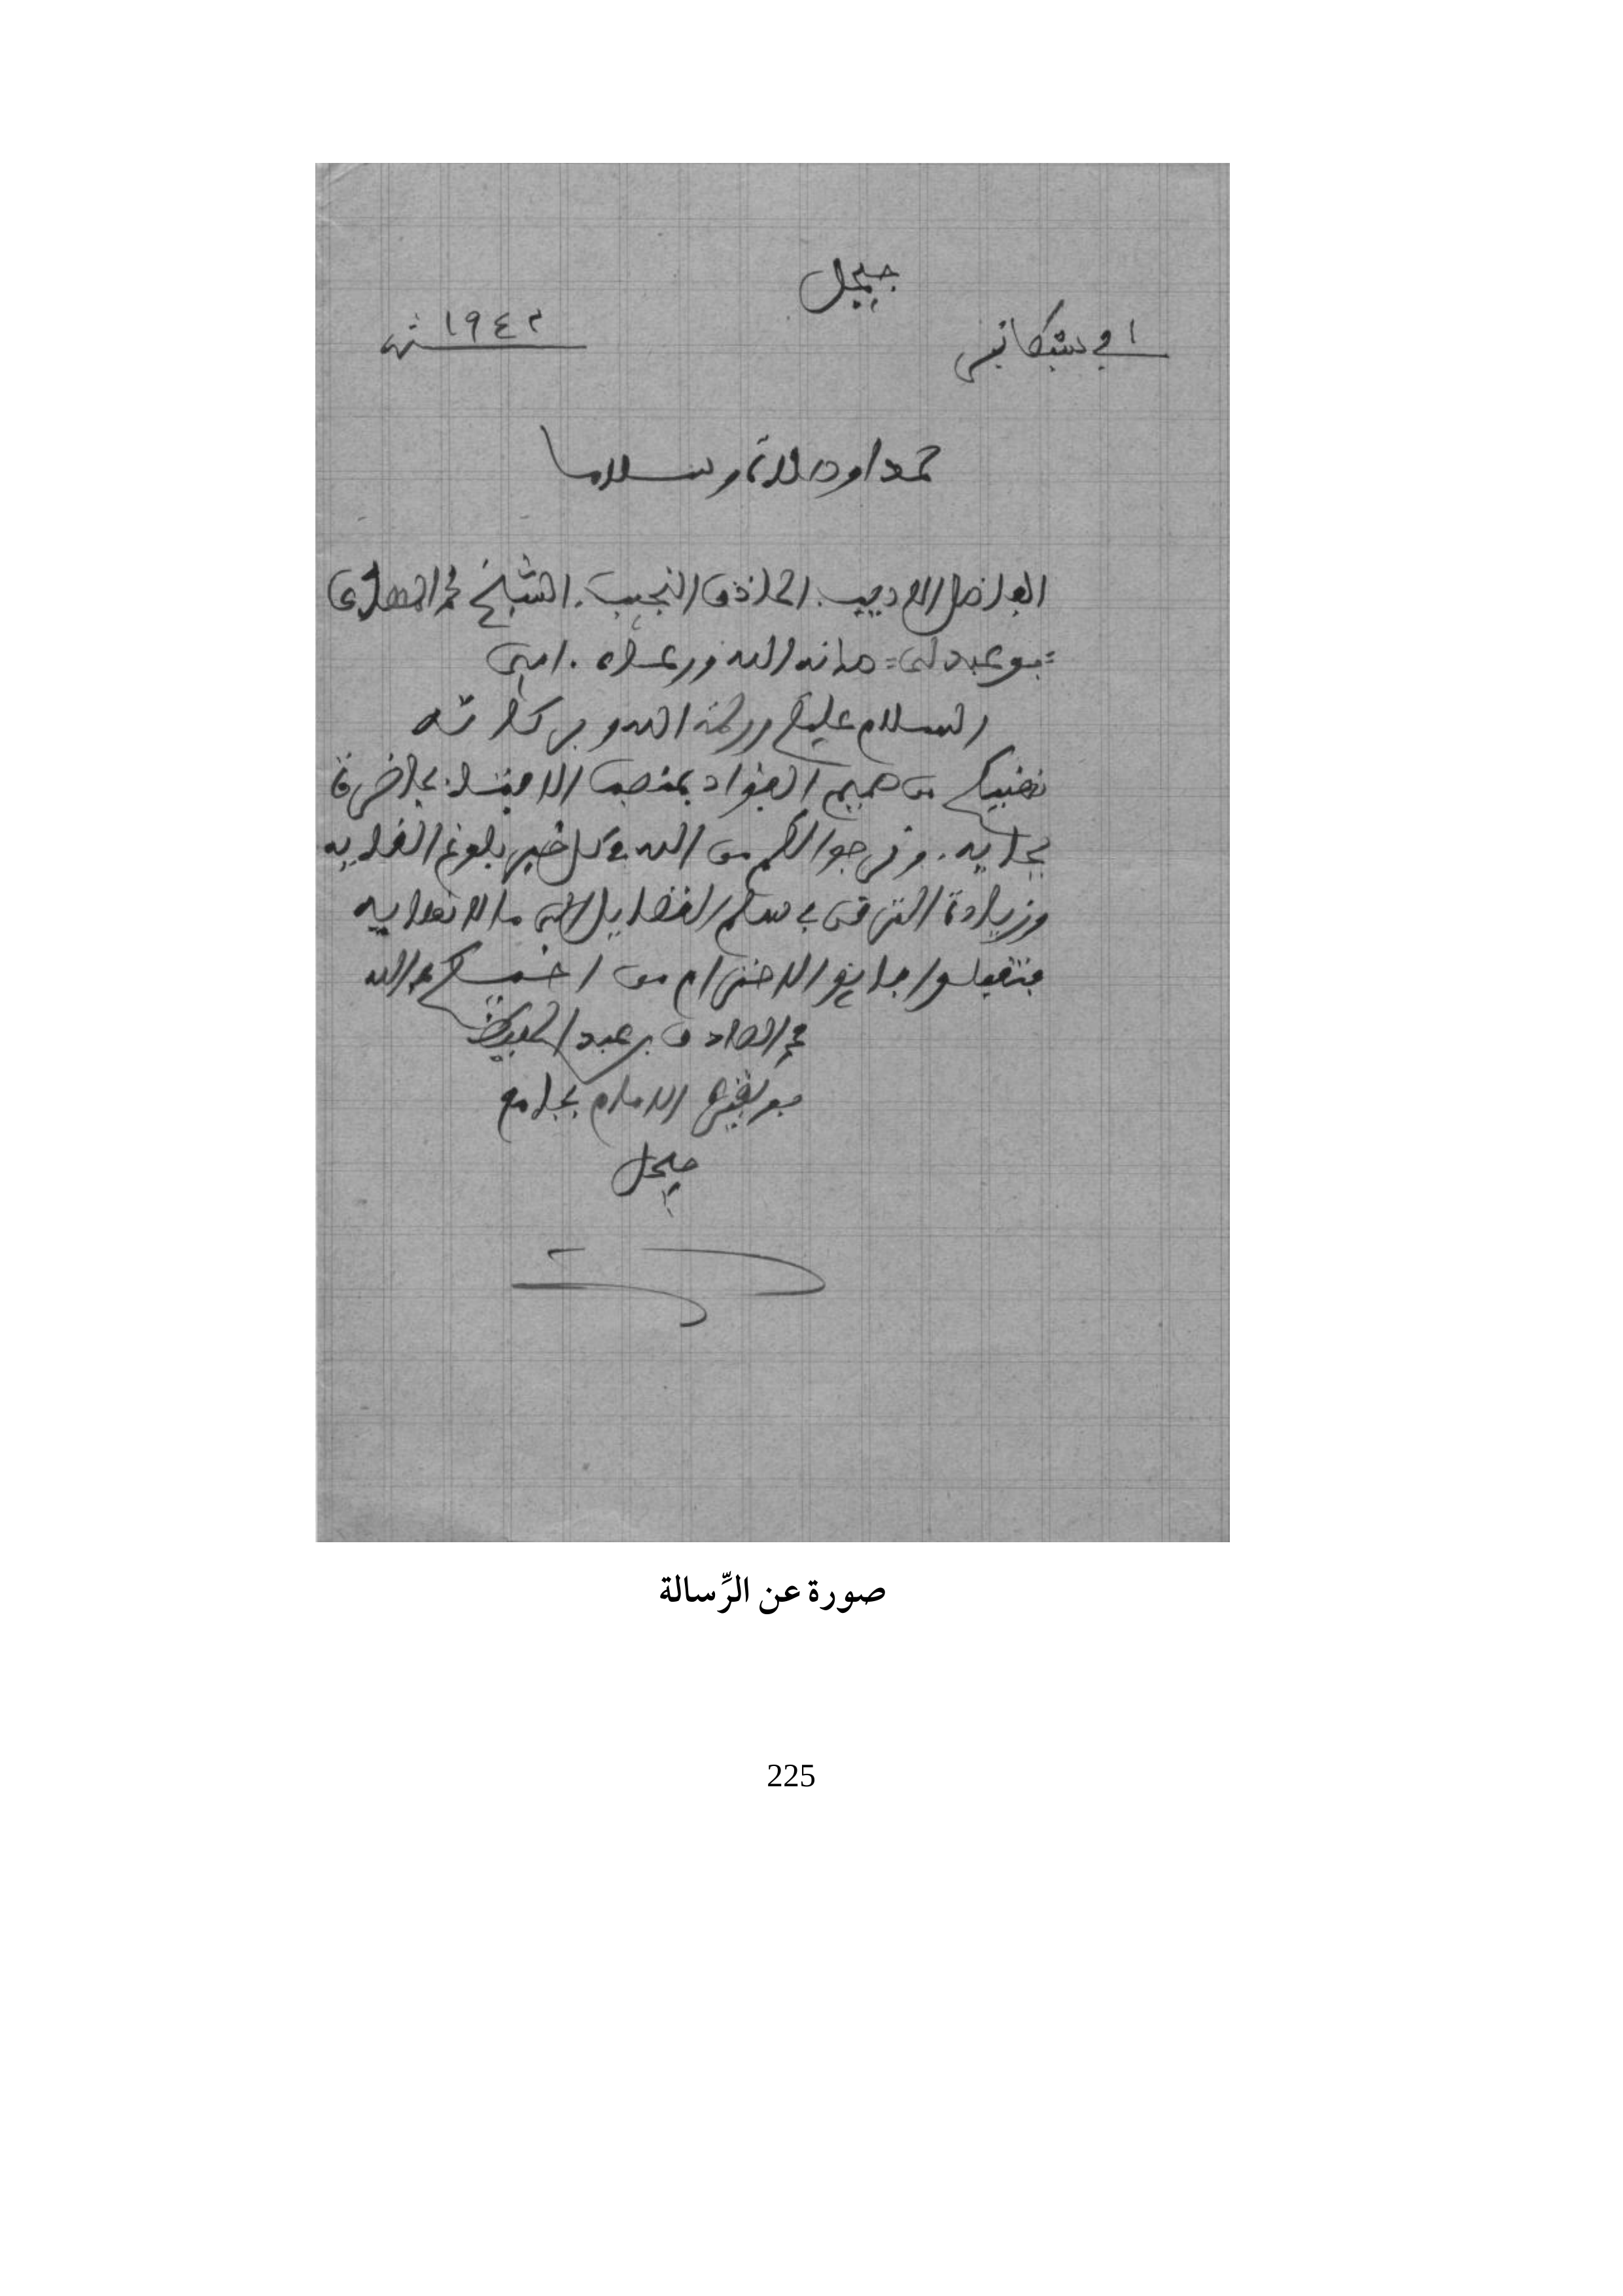 جيجل
١ في شتكانبر
١٩٤٢ سنة
حمدا وصلاة وسلاما
الفاضل الاديب. الحاذق النجيب. الشيخ محمد المهدي
=بوعبدلي= صانه الله ورعاه. امين
السلام عليكم ورحمة الله وبركاته
نهنيكم من صميم الفؤاد بمنصب الافتاء بحاضرة
بجاية. ونرجو لكم من الله في كل خير بلوغ الغاية
وزيادة الترقي في سلم الفضايل الى ما لا نهاية
فتقبلوا فايق الاحترام من اخيكم في الله
محمد الصادق بن عبد الحفيظ
الامام بجامع
جيجل
صورة عن الرِّسالة
225